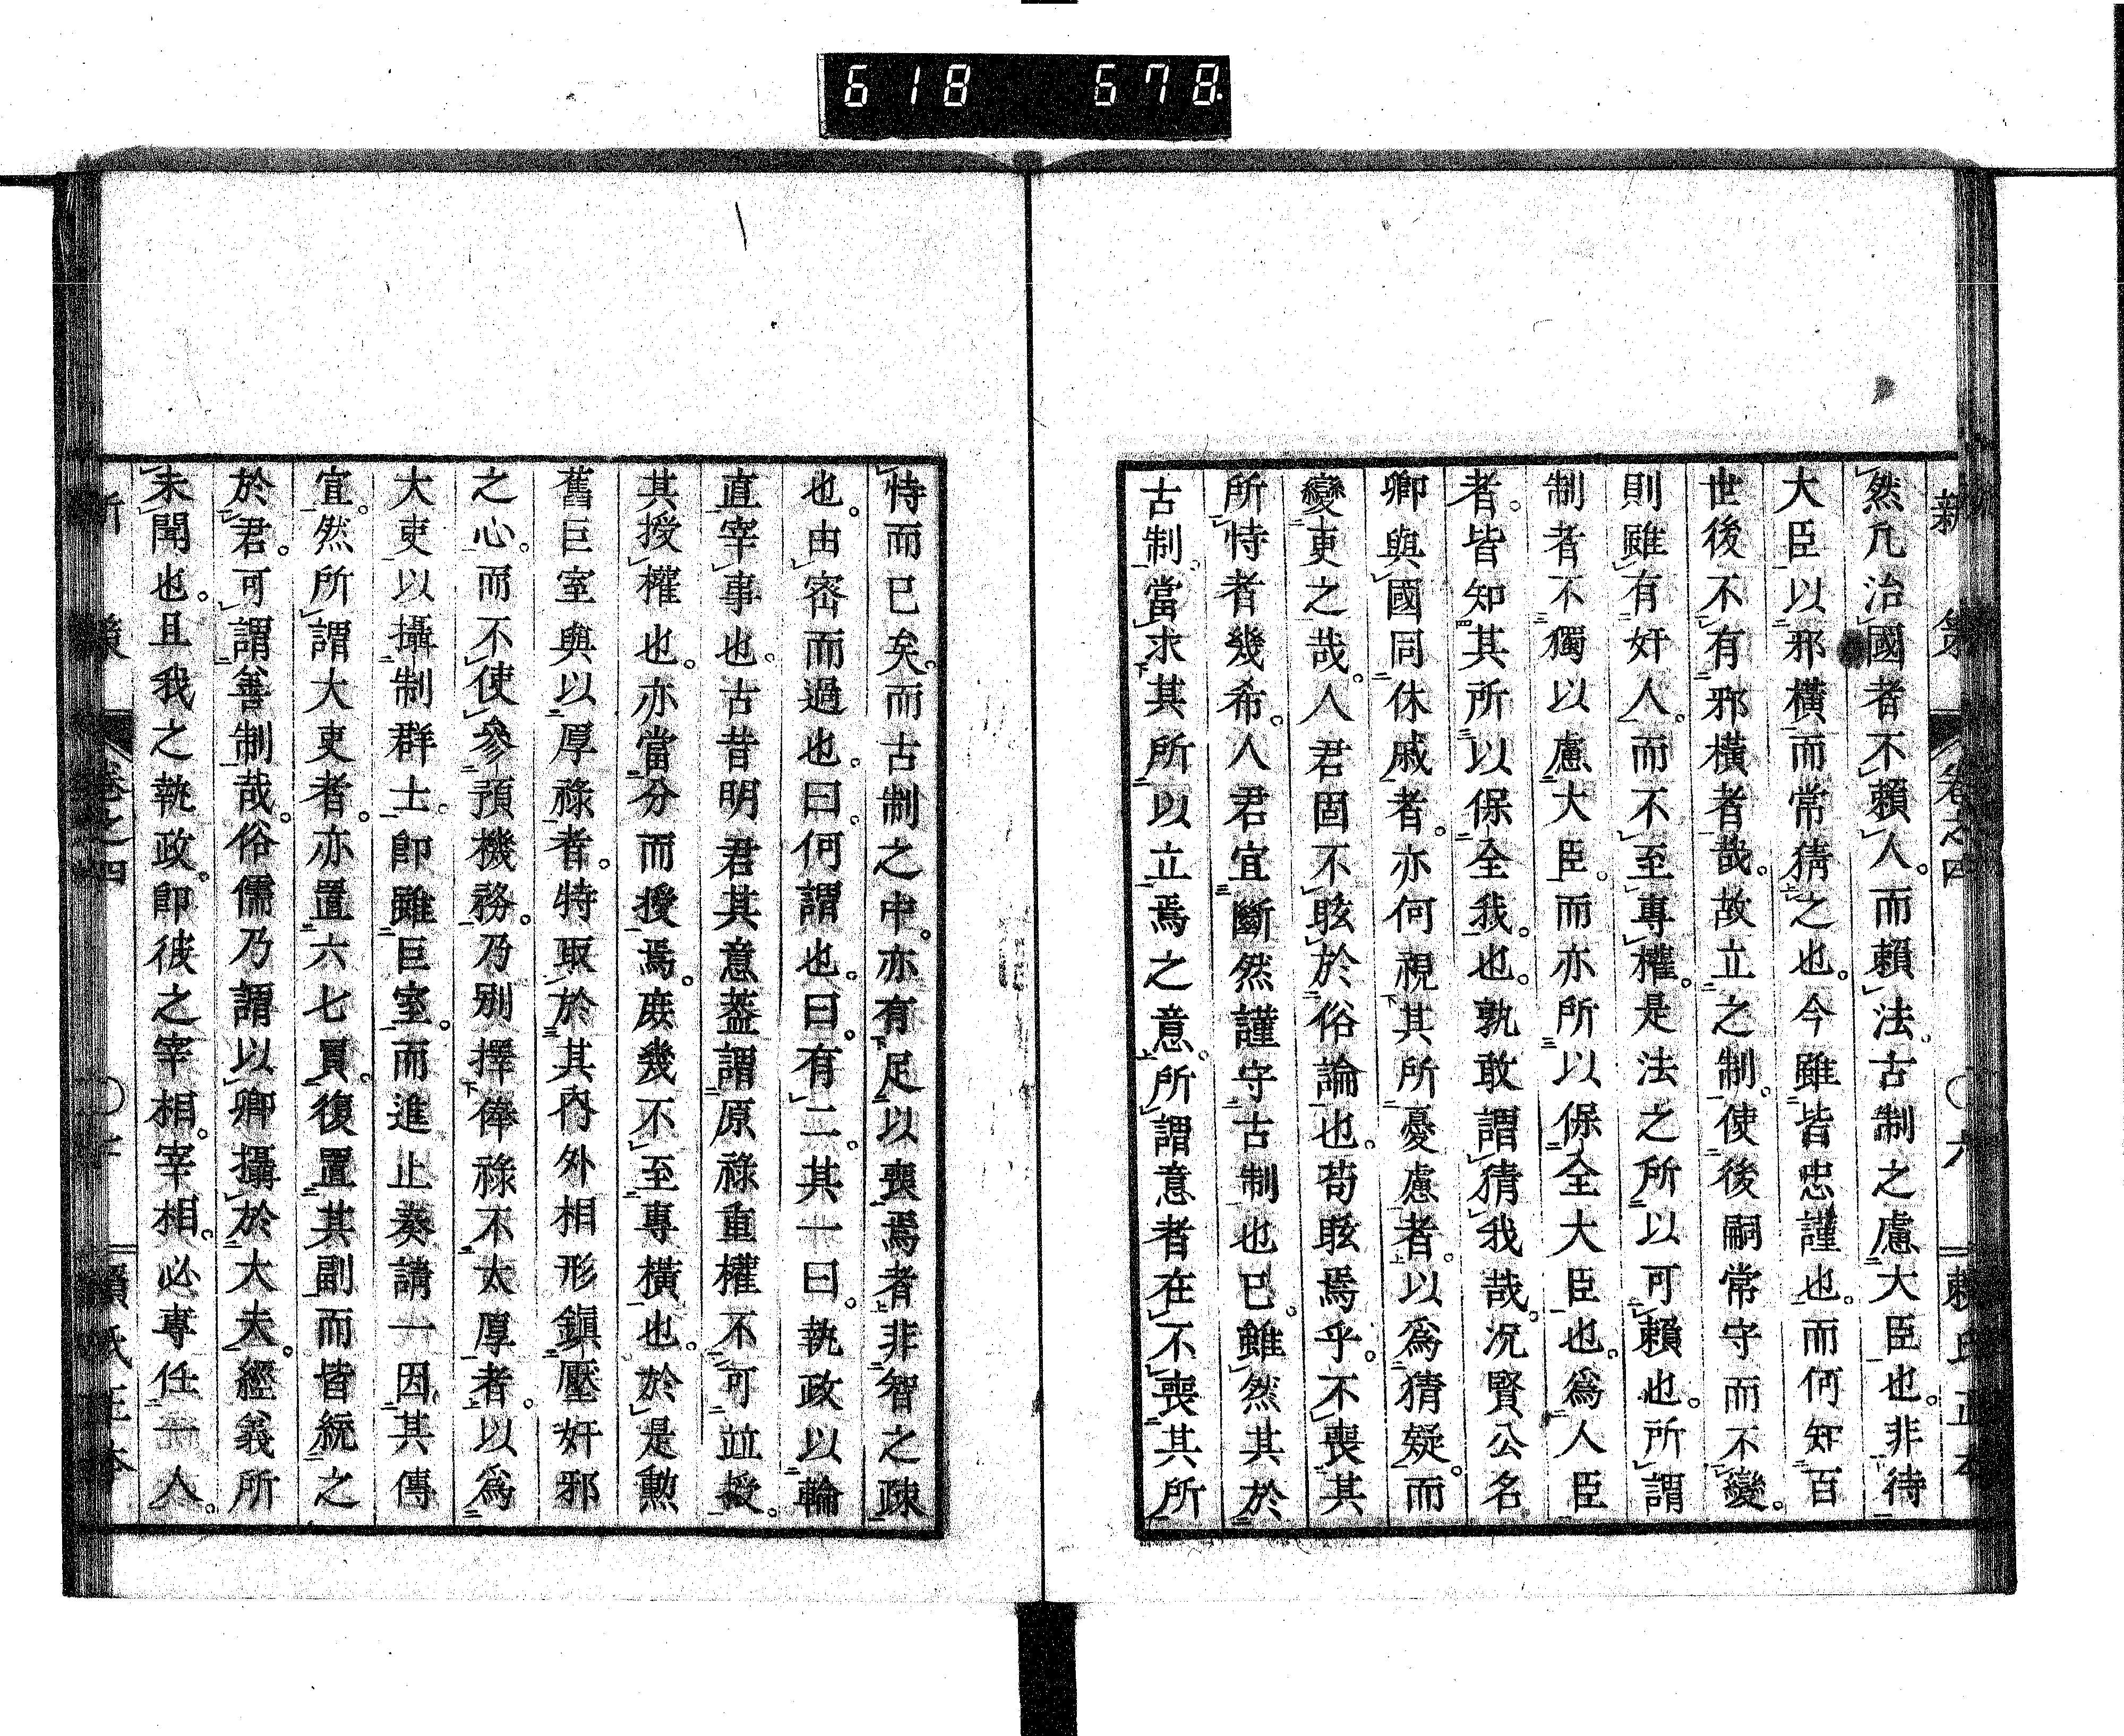 618 678.
新策 卷之四 〇六 賴氏正本
然凡治國者不賴人。而賴法。古制之慮大臣也。非待
大臣以邪橫而常猜之也。今雖皆忠謹也。而何知百
世後不有邪橫者哉。故立之制。使後嗣常守而不變。
則雖有奸人。而不至專權。是法之所以可賴也。所謂
制者不獨以慮大臣。而亦所以保全大臣也。爲人臣
者。皆知其所以保全我也。孰敢謂猜我哉。况賢公名
卿與國同休戚者。亦何視其所憂慮者。以爲猜疑。而
變更之哉。人君固不眩於俗論也。苟眩焉乎。不喪其
所恃者幾希。人君宜斷然謹守古制也已。雖然其於
古制。當求其所以立焉之意。所謂意者在不喪其所
恃而已矣。而古制之中。亦有足以喪焉者非智之疎
也。由密而過也。曰。何謂也。曰。有二。其一曰。執政以輪
直宰事也。古昔明君其意蓋謂原祿重權不可並授。
其授權也。亦當分而授焉。庶幾不至專橫也。於是勲
舊巨室與以厚祿者。特取於其內外相形鎭壓奸邪
之心。而不使參預機務。乃別擇俸祿不太厚者。以爲
大吏以攝制群士。卽雖巨室。而進止奏請一因其傳
宜。然所謂大吏者。亦置六七員。復置其副而皆統之
於君。可謂善制哉。俗儒乃謂以卿攝於大夫。經義所
未聞也。且我之執政。卽彼之宰相。宰相。必專任一人。
新策 卷之四 〇 賴氏正本